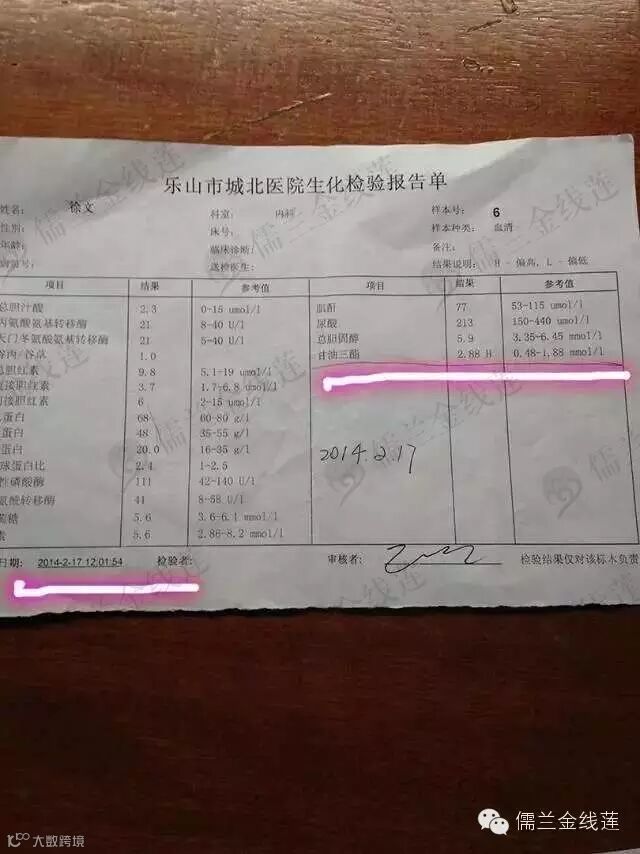 乐山市城北医院生化检验报告单
姓名: 徐文 科室: 内科 样本号: 6
性别: 床号: 样本种类: 血清
年龄: 临床诊断: 备注:
病历号: 送检医生: 结果说明: H - 偏高, L - 偏低
项目 结果 参考值 项目 结果 参考值
总胆汁酸 2.3 0-15 umol/l 肌酐 77 53-115 umol/l
丙氨酸氨基转移酶 21 8-40 U/l 尿酸 213 150-440 umol/l
天门冬氨酸氨基转移酶 21 5-40 U/l 总胆固醇 5.9 3.35-6.45 mmol/l
谷丙/谷草 1.0 甘油三酯 2.88 H 0.48-1.88 mmol/l
总胆红素 9.8 5.1-19 umol/l
直接胆红素 3.7 1.7-6.8 umol/l
间接胆红素 6 2-15 umol/l
总蛋白 68 60-80 g/l
白蛋白 48 35-55 g/l
球蛋白 20.0 16-35 g/l
白球蛋白比 2.4 1-2.5
碱性磷酸酶 111 42-140 U/l
氨酸转移酶 41 8-58 U/l
葡萄糖 5.6 3.6-6.1 mmol/l
素 5.6 2.86-8.2 mmol/l
2014.2.17
日期: 2014-2-17 12:01:54 检验者: 审核者: 检验结果仅对该标本负责
儒兰金线莲
儒兰金线莲
大数跨境